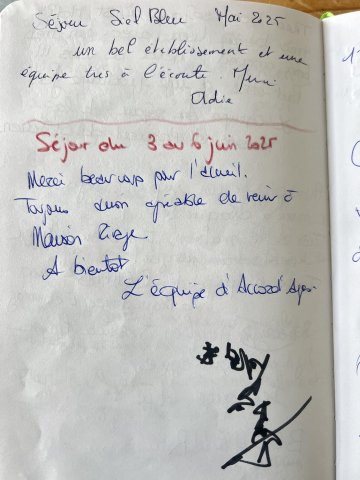 Séjour Siel Bleu Mai 2025
un bel etablissement et une
équipe très à l'écoute. Merci
Odile
Séjour du 3 au 6 juin 2025
Merci beaucoup pour l'accueil.
Toujours aussi agréable de venir à
Maison
A bientôt
L'équipe d'Accord'